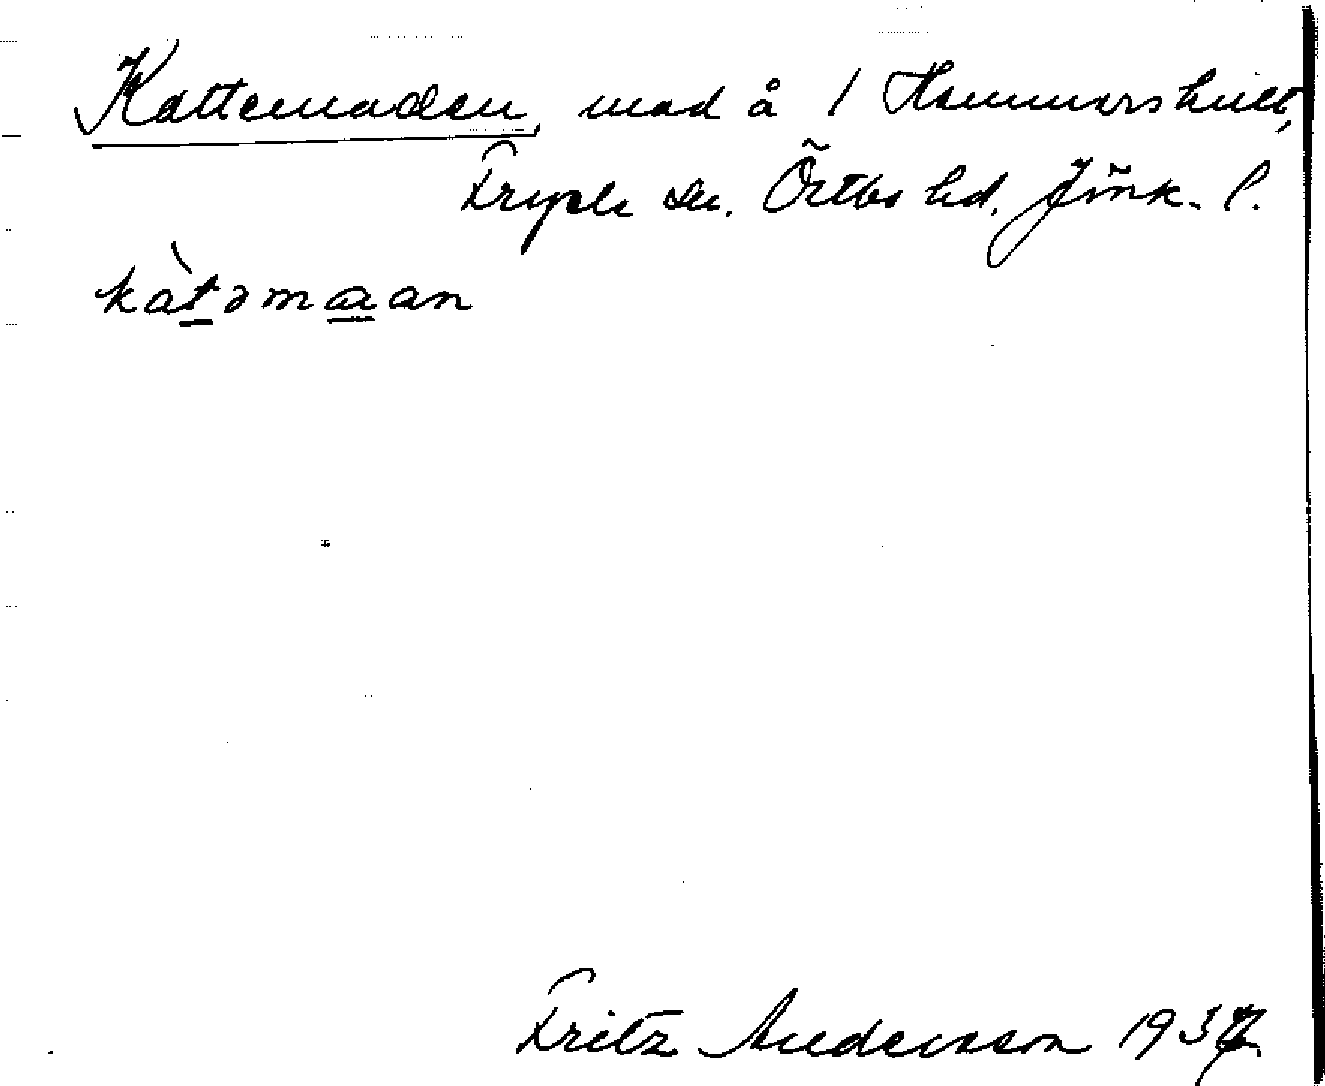 Kattemaden, mad å 1 Hammarshult,
Fryele sn. Östbo hd. Jönk. l.
kàtəmaan
Fritz Andersson 1937